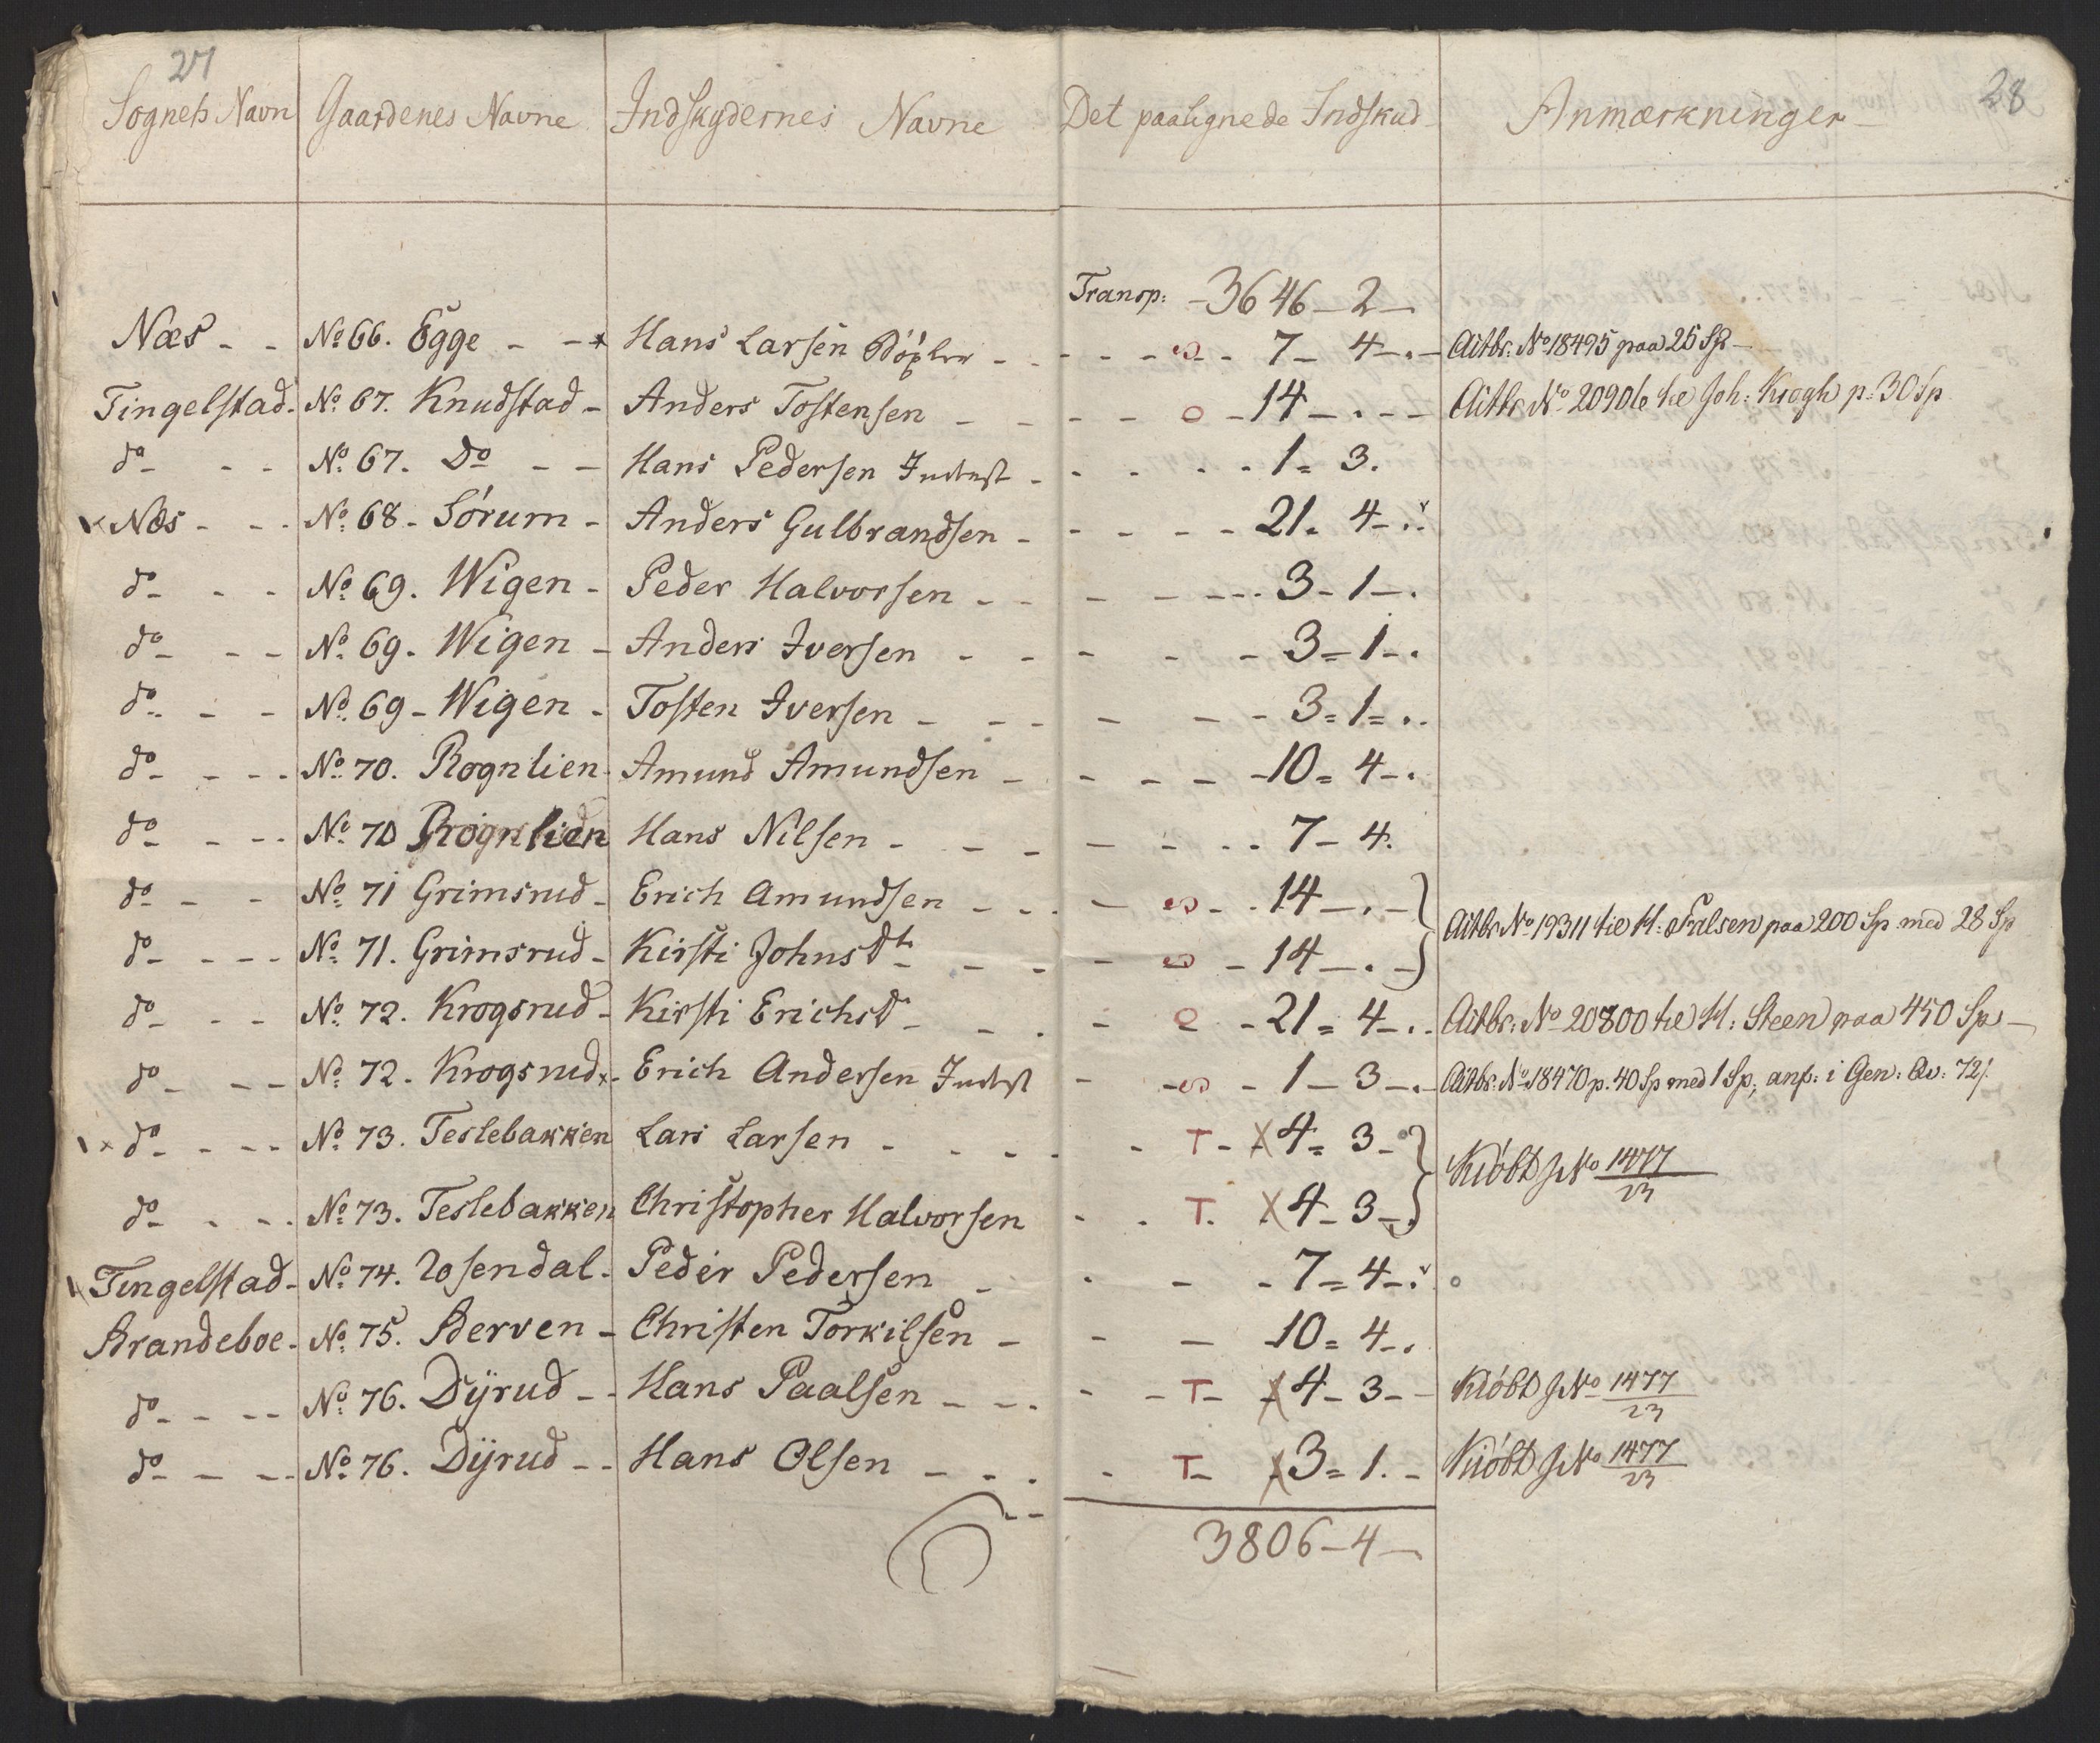 27 28
Sognets Navn Gaardenes Navne Indskydernes Navne Det paalignede Indskud Anmærkninger
Transp: 3646 - 2 -
Næs - - No 66. Egge - - * Hans Larsen - - - 7 - 4 - . - Actbr: No 18495 paa 25 Sp -
Tingelstad - No 67. Knudstad - Anders Tostensen - - - - o - 14 - . - - Actbr No 20906 til Joh: Krogh p: 30 Sp
do - - - No 67. Do - - Hans Pedersen Inderst - - - 1 = 3.
x Næs - - - No 68 - Sórum - Anders Gulbrandsen - - - - - 21 - 4 - .
do - - - No 69. Wigen - Peder Halvorsen - - - - - 3 - 1 - .
do - - - No 69. Wigen - Anders Iversen - - - - - 3 = 1 - .
do - - - No 69 - Wigen - Tosten Iversen - - - - - 3 = 1 = .
do - - - - No 70. Rognlien - Amund Amundsen - - - - - 10 = 4 - .
do - - - - No 70 Rognlien Hans Nilsen - - - - - 7 - 4.
do - - - No 71 Grimsrud - Erich Amundsen - - - 14 - . -
do - - - - No 71. Grimsrud - Kirsti Johnsdt - - - - 14 - . - Actbr No 19311 til H: Falsen paa 200 Sp med 28 Sp
do - - - No 72. Krogsrud - Kirsti Erichsd - - - - 21 = 4 - . - Actbr: No 20800 til H: Steen paa 450 Sp -
do - - - No 72. Krogsrud x - Erich Andersen Inderst - - 1 - 3 - . - Actbr. No 18470 p. 40 Sp med 1 Sp; anf: i Gen: Qv: 72/.
x do - - - - No 73. Teslebakken Lars Larsen - - - - T - X 4 = 3 -
do - - - - No 73. Teslebakken Christopher Halvorsen - - T. X 4 - 3 - . Kióbt J No 1477/23
Tingelstad - No 74. Rosendal - Peder Pedersen - - - - 7 = 4 - . o
Brandeboe - No 75. Berven - Christen Torkilsen - - - 10 = 4 - .
do - - - - No 76. Dÿrud - - Hans Paalsen - - - - - T - X 4 - 3 - - Kióbt J No 1477/23
do - - - - No 76. Dÿrud - - Hans Olsen - - - - T - X 3 = 1. - Kióbt J No 1477/23
3806 - 4 -